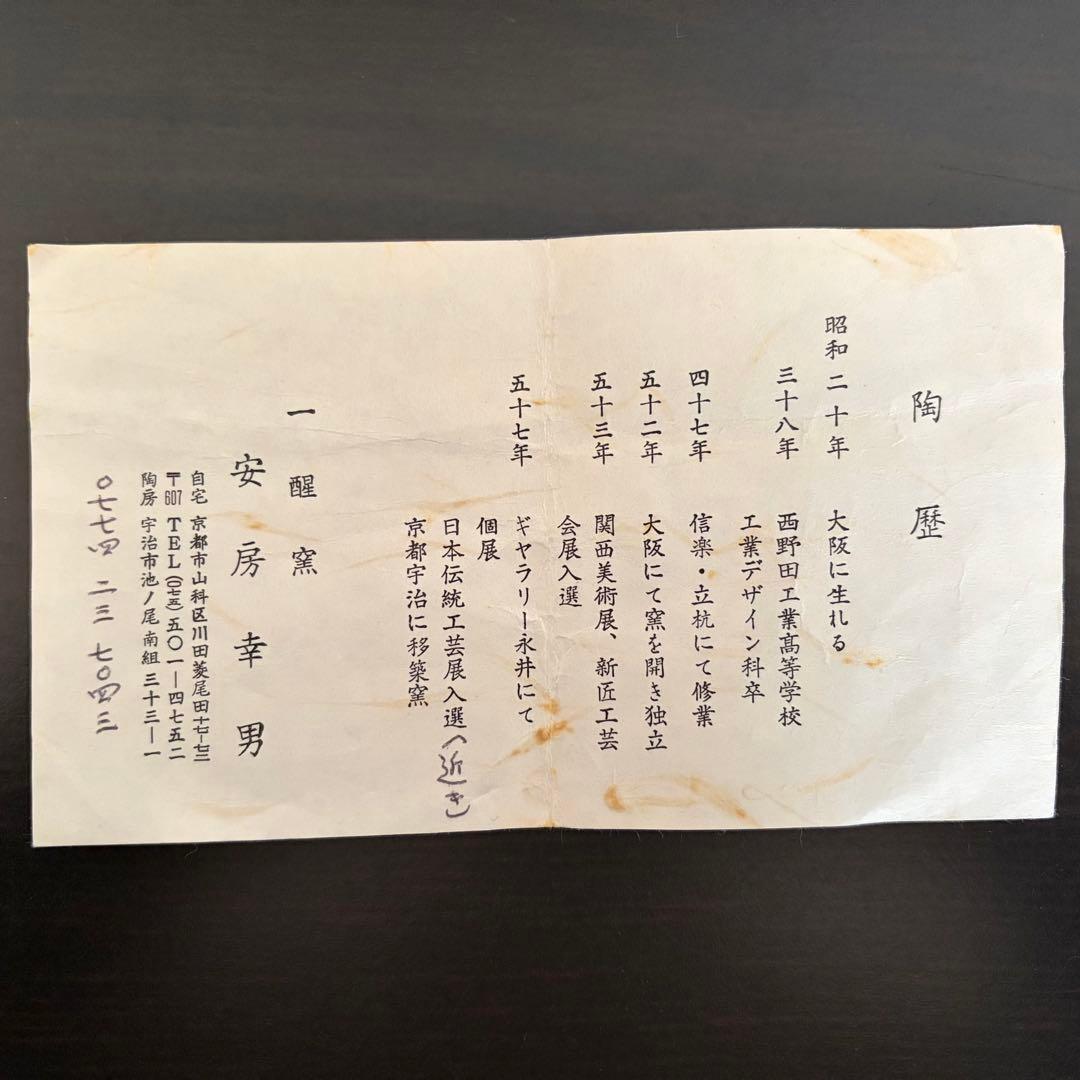 陶歴
昭和二十年 大阪に生れる
三十八年 西野田工業高等学校
工業デザイン科卒
四十七年 信楽・立杭にて修業
五十二年 大阪にて窯を開き独立
五十三年 関西美術展、新匠工芸
会展入選
五十七年 ギャラリー永井にて
個展
日本伝統工芸展入選(近き)
京都宇治に移築窯
一醒窯
安房幸男
自宅 京都市山科区川田菱尾田十七-七三
〒607 TEL(〇七五)五〇一-四七五二
陶房 宇治市池ノ尾南組三十三-一
〇七七四 二三 七〇四三